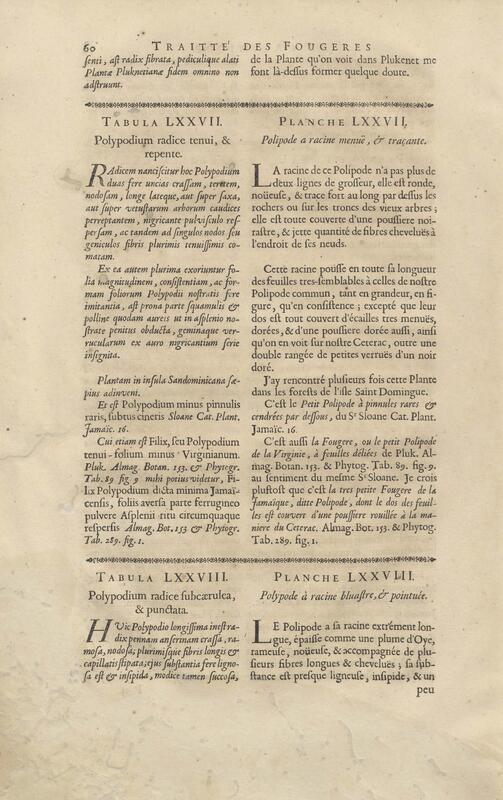 60 TRAITTÉ DES FOUGERES
senti, ast radix fibrata, pediculique alati
Plantæ Pluknetianæ fidem omnino non
adstruunt.
de la Plante qu'on voit dans Plukenet me
font là-dessus former quelque doute.
TABULA LXXVII.
Polypodium radice tenui, &
repente.
RAdicem nanciscitur hoc Polypodium
duas fere uncias crassam, teretem,
nodosam, longe lateque, aut super saxa,
aut super vetustarum arborum caudices
perreptantem, nigricante pulvisculo res-
persam, ac tandem ad singulos nodos seu
geniculos fibris plurimis tenuissimis co-
matam.
Ex ea autem plurima exoriuntur fo-
lia magnitudinem, consistentiam, ac for-
mam foliorum Polypodii nostratis fere
imitantia, ast prona parte squamulis &
polline quodam aureis ut in asplenio no-
strate penitus obducta, geminaque ver-
rucularum ex auro nigricantum serie
insignita.
Plantam in insula Sandominicana sæ-
pius adinveni.
Et est Polypodium minus pinnulis
raris, subtus cineris Sloane Cat. Plant.
Jamaïc. 16.
Cui etiam est Filix, seu Polypodium
tenui-folium minus Virginianum.
Pluk. Almag. Botan. 153. & Phytogr.
Tab. 89 fig. 9 mihi potius videtur, Fi-
lix Polypodium dicta minima Jamaï-
censis, foliis aversa parte ferrugineo
pulvere Asplenii ritu circumquaque
respersis Almag. Bot. 153 & Phytogr.
Tab. 289. fig. 1.
PLANCHE LXXVII.
Polipode a racine menuë, & traçante.
LA racine de ce Polipode n'a pas plus de
deux lignes de grosseur, elle est ronde,
noüeuse, & trace fort au long par dessus les
rochers ou sur les trones des vieux arbres;
elle est toute couverte d'une poussiere noi-
rastre, & jette quantité de fibres cheveluës à
l'endroit de ses neuds.
Cette racine pousse en toute sa longueur
des feuilles tres-semblables à celles de nostre
Polipode commun, tant en grandeur, en fi-
gure, qu'en consistence; excepté que leur
dos est tout couvert d'écailles tres menuës,
dorées, & d'une poussiere dorée aussi, ainsi
qu'on en voit sur nostre Ceterac, outre une
double rangée de petites verruës d'un noir
doré.
J'ay rencontré plusieurs fois cette Plante
dans les forests de l'isle Saint Domingue.
C'est le Petit Polipode à pinnules rares &
cendrées par dessous, du Sr Sloane Cat. Plant.
Jamaïc. 16.
C'est aussi la Fougere, ou le petit Polipode
de la Virginie, à feuilles déliées de Pluk. Al-
mag. Botan. 153. & Phytog. Tab. 89. fig. 9.
au sentiment du mesme Sr Sloane. Je crois
plustost que c'est la tres petite Fougere de la
Jamaïque, ditte Polipode, dont le dos des feuil-
les est couvert d'une poussiere rouillée à la ma-
niere du Ceterac. Almag. Bot. 153. & Phytog.
Tab. 289. fig. 1.
TABULA LXXVIII.
Polypodium radice subcærulea,
& punctata.
HUic Polypodio longissima inest ra-
dix pennam anserinam crassa, ra-
mosa, nodosa; plurimisque fibris longis &
capillatis stipata; ejus substantia fere ligno-
sa est & insipida, modice tamen succosa,
PLANCHE LXXVIII.
Polypode à racine bluastre, & pointuée.
LE Polipode a sa racine extrément lon-
gue, épaisse comme une plume d'Oye,
rameuse, noüeuse, & accompagnée de plu-
sieurs fibres longues & cheveluës; sa sub-
stance est presque ligneuse, insipide, & un
peu